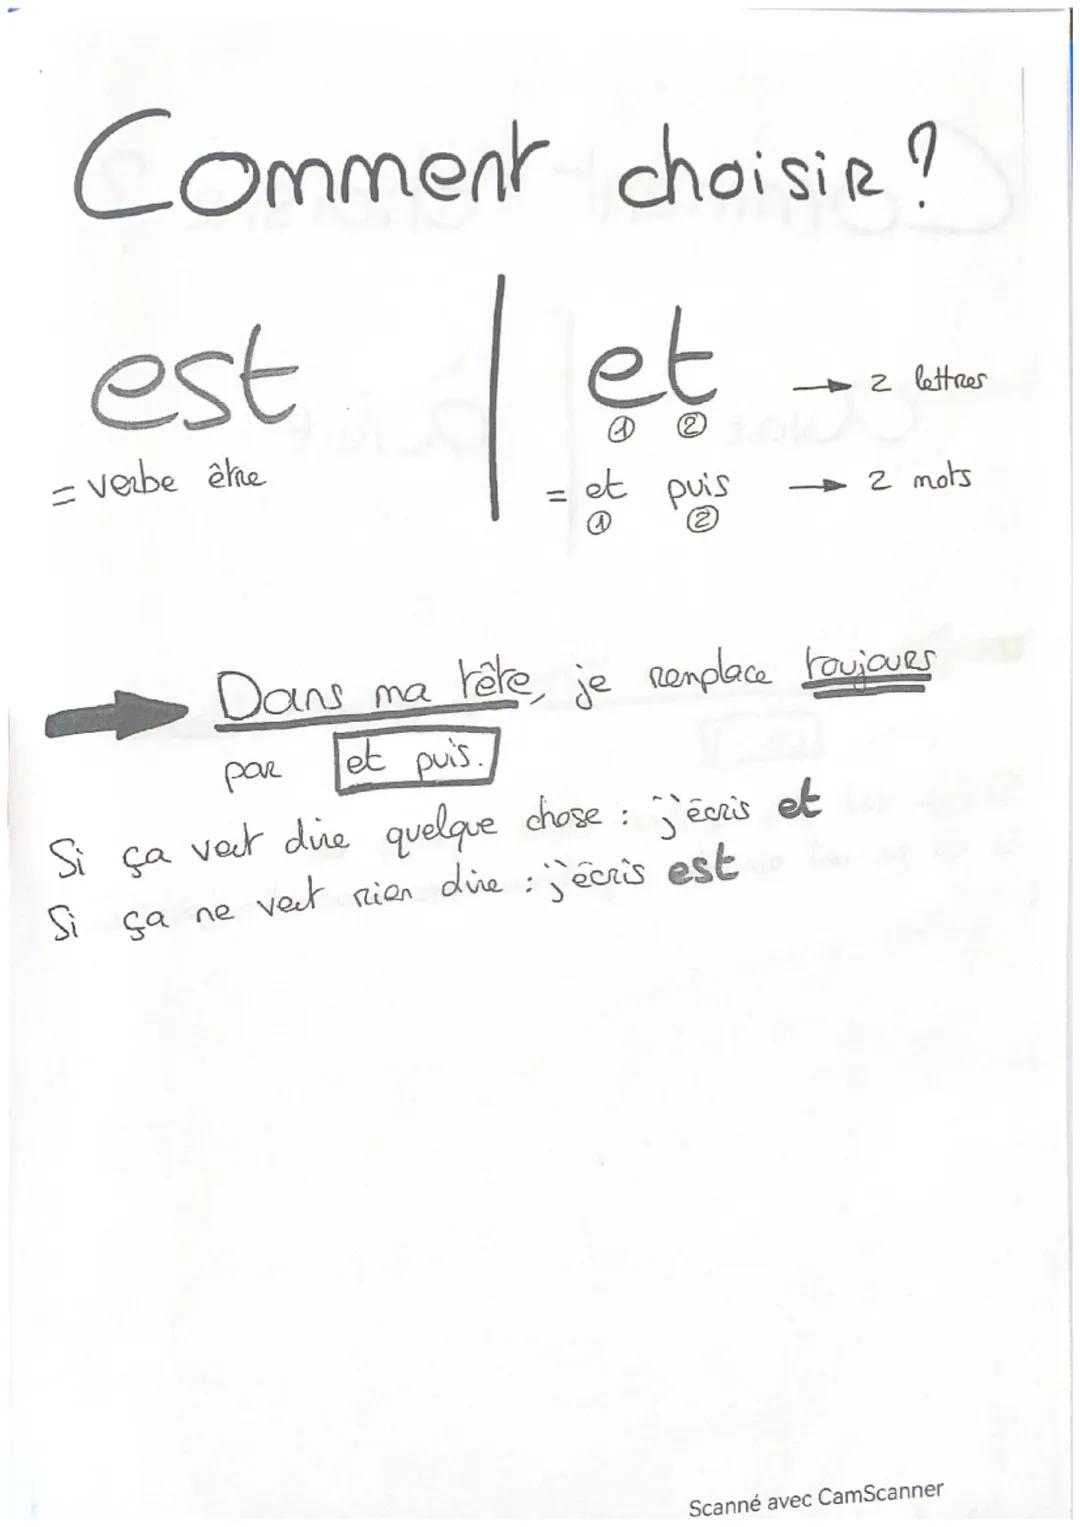 Comment choisir ?
est | et → 2 lettres
① ②
= verbe être = et puis → 2 mots
① ②
Dans ma tête, je remplace toujours
par et puis.
Si ça veut dire quelque chose : j'écris et
Si ça ne veut rien dire : j'écris est
Scanné avec CamScanner